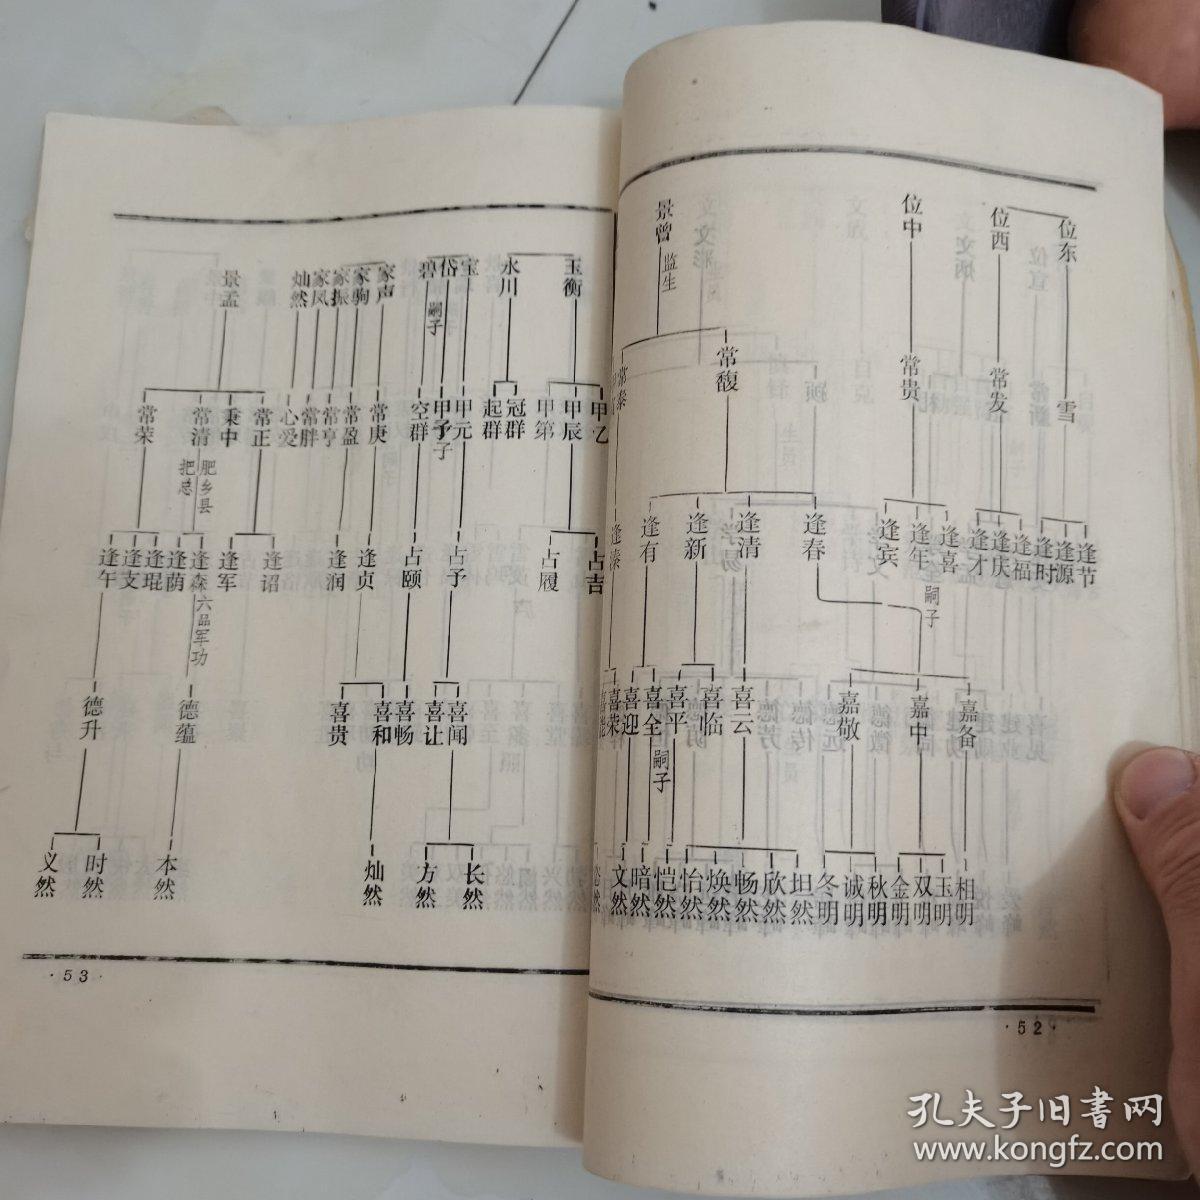 位东
位西
位中
景曾 监生
雪
常发
常贵
常馥
常泰
逢节
逢源
逢时
逢福
逢庆
逢才
逢喜
逢年 嗣子
逢宾
逢春
逢清
逢新
逢有
逢溱
嘉备
嘉中
嘉敬
喜云
喜临
喜平
喜全 嗣子
喜迎
喜荣
相明
玉明
双明
金明
秋明
诚明
冬明
坦然
欣然
畅然
焕然
怡然
恺然
暗然
文然
·52·
玉衡
永川
宝
岱
碧 嗣子
家声
家驹
家振
家凤
灿然
景孟
甲乙
甲辰
甲第
冠群
起群
甲元
甲予 子
空群
常庚
常盈
常亨
常胖
心爱
常正
秉中
常清 肥乡县把总
常荣
占吉
占履
占予
占颐
逢贞
逢润
逢诏
逢军
逢森 六品军功
逢荫
逢琨
逢支
逢午
喜闻
喜让
喜畅
喜和
喜贵
德蕴
德升
长然
方然
灿然
本然
时然
义然
·53·
孔夫子旧書网
www.kongfz.com